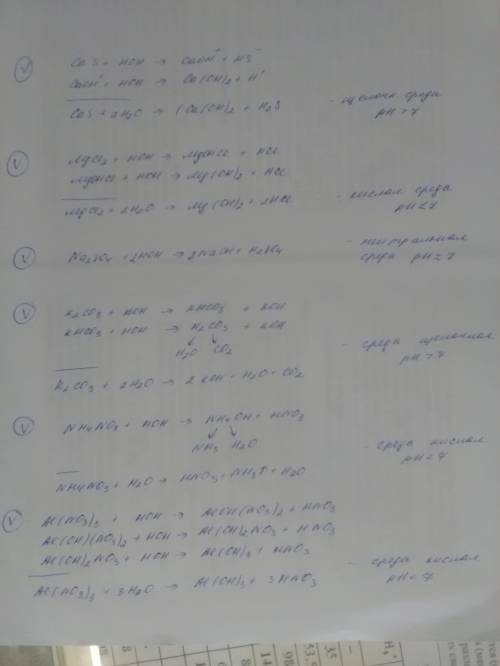 V CaS + HOH → CaOH⁺ + HS⁻
CaOH⁺ + HOH → Ca(OH)₂ + H⁺
CaS + 2H₂O → (Ca(OH)₂ + H₂S - щелочн среда
pH > 7
V MgCl₂ + HOH → MgOHCl + HCl
MgOHCl + HOH → Mg(OH)₂ + HCl
MgCl₂ + 2H₂O → Mg(OH)₂ + 2HCl - кислая среда
pH < 7
V Na₂SO₄ + 2HOH → 2NaOH + H₂SO₄ - нейтральная
среда pH = 7
V K₂CO₃ + HOH → KHCO₃ + KOH
KHCO₃ + HOH → H₂CO₃ + KOH
H₂O CO₂
K₂CO₃ + 2H₂O → 2KOH + H₂O + CO₂ - среда щелочная
pH > 7
V NH₄NO₃ + HOH → NH₄OH + HNO₃
NH₃ H₂O
NH₄NO₃ + H₂O → HNO₃ + NH₃↑ + H₂O - среда кислая
pH < 7
V Al(NO₃)₃ + HOH → AlOH(NO₃)₂ + HNO₃
Al(OH)(NO₃)₂ + HOH → Al(OH)₂NO₃ + HNO₃
Al(OH)₂NO₃ + HOH → Al(OH)₃ + HNO₃
Al(NO₃)₃ + 3H₂O → Al(OH)₃ + 3HNO₃ - среда кислая
pH < 7